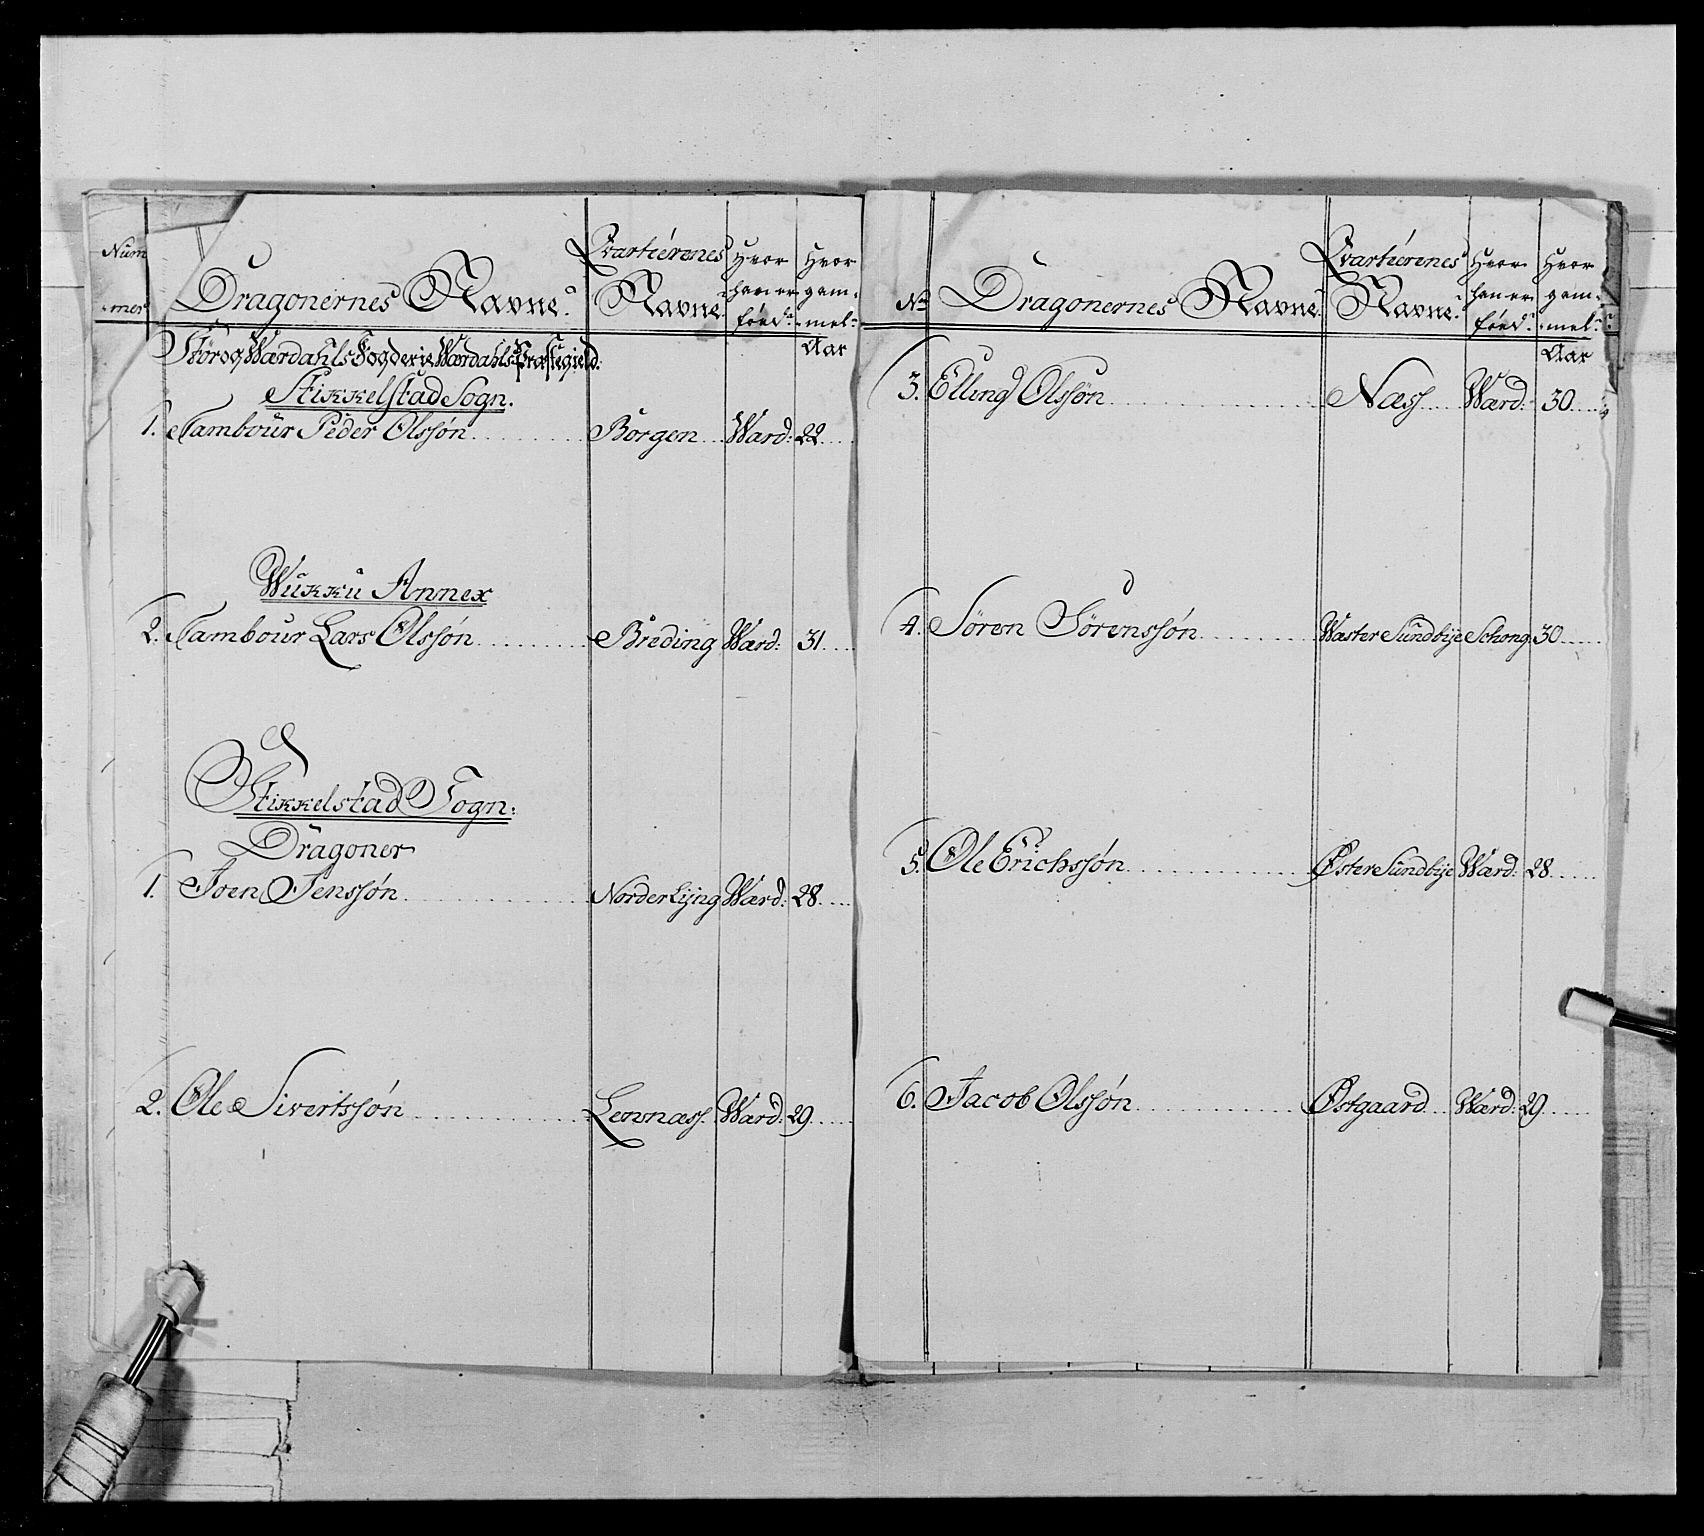 Num
-mer
Dragonernes Navne.
Qvartiérenes
Navne.
Hvor
han er
föed:
Hvor
gam-
mel:
Aar
Stör og Wærdahls Fogderie Wærdahls Præstegield:
Stikkelstad Sogn.
1. Tambour Peder Olssøn Borgen Wærd: 22
Wukku Annex
2. Tambour Lars Olssøn Breding Wærd: 31
Stikkelstad Sogn:
Dragoner
1. Joen Jenssøn Norder Lijng Wærd: 28
2. Ole Sivertssøn Levnæss. Wærd: 29
No Dragonernes Navne.
Qvartiérenes
Navne.
Hvor
han er
föed:
Hvor
gam-
mel:
Aar
3. Elling Olssøn Næss Wærd: 30
4. Sören Sörenssøn Wæster Sundbije Schong 30
5. Ole Erichssøn Øster Sundbije Wærd: 28
6. Jacob Olssøn Østgaard Wærd: 29